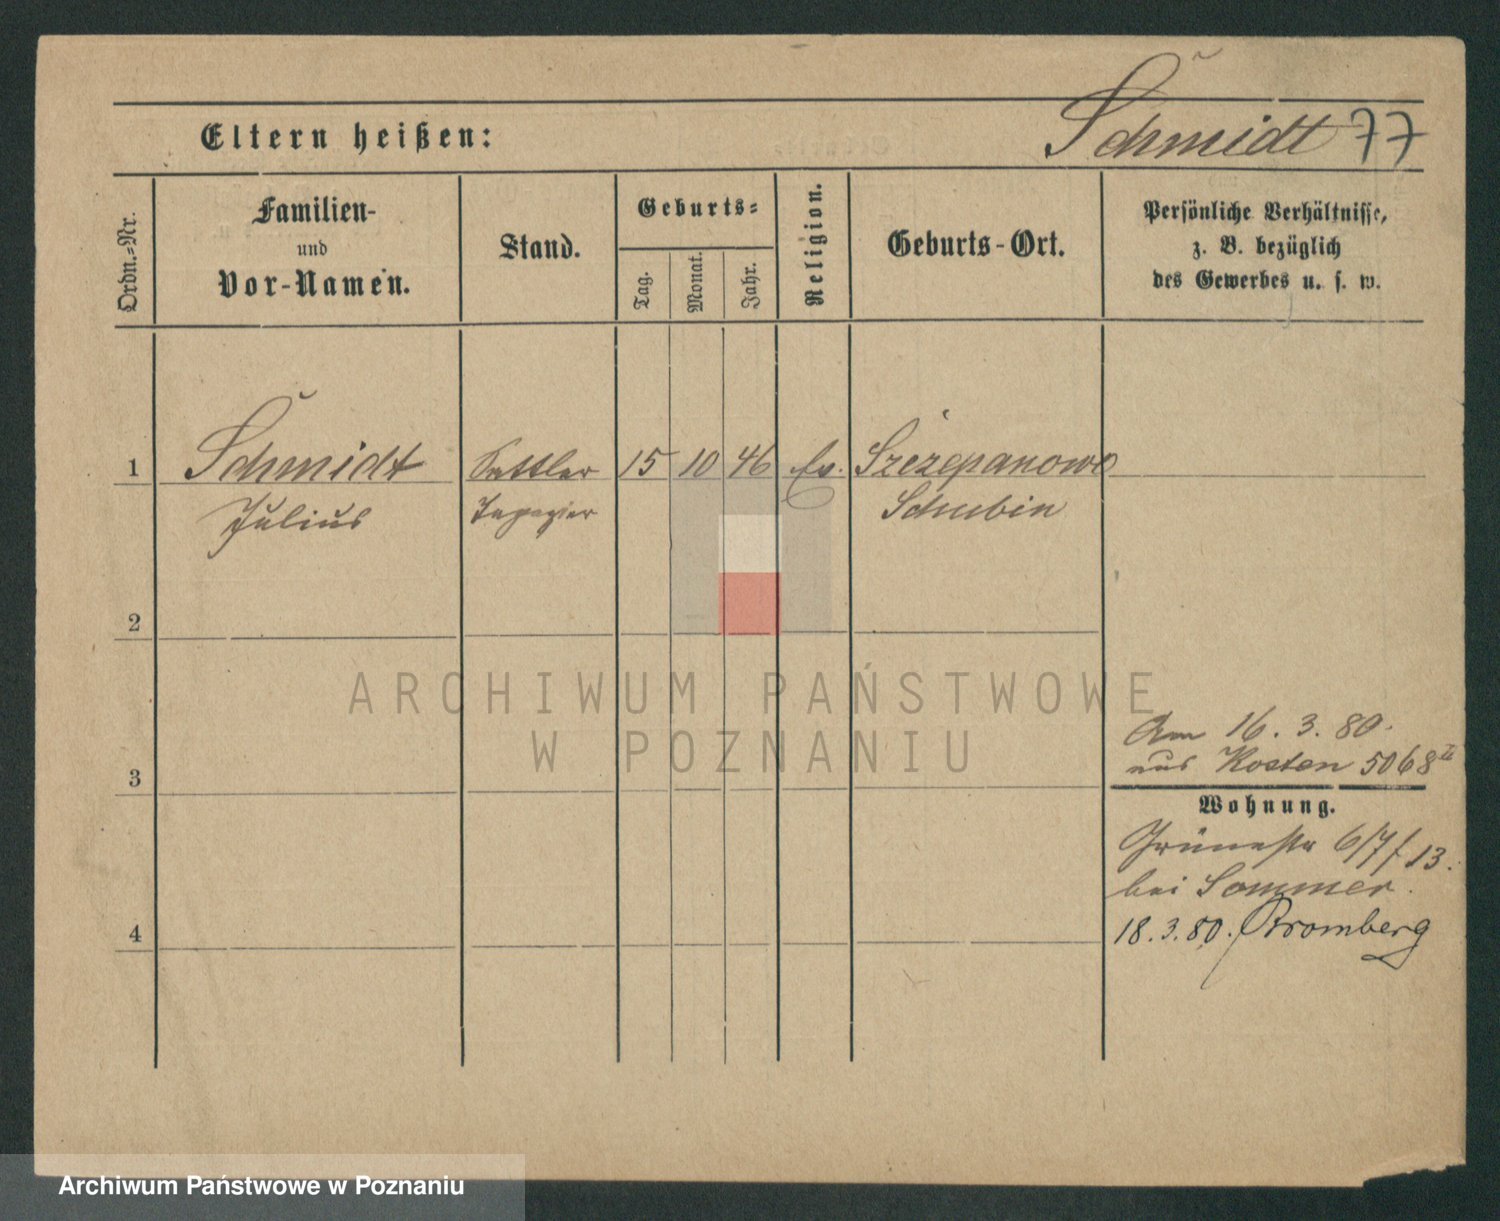 Schmidt 77
Eltern heißen:
Ordn.-Nr.
Familien-
und
Vor-Namen.
Stand.
Geburts-
Tag.
Monat.
Jahr.
Religion.
Geburts-Ort.
Persönliche Verhältnisse,
z. B. bezüglich
des Gewerbes u. s. w.
1 Schmidt Sattler 15 10 46 Ev. Szczepanowo
Julius Tapezier Schubin
2
ARCHIWUM PAŃSTWOWE
W POZNANIU
Am 16. 3. 80.
aus Kosten 5068
3
Wohnung.
Grünestr 6/7 13.
bei Sommer.
4
18. 3. 80. Bromberg
Archiwum Państwowe w Poznaniu